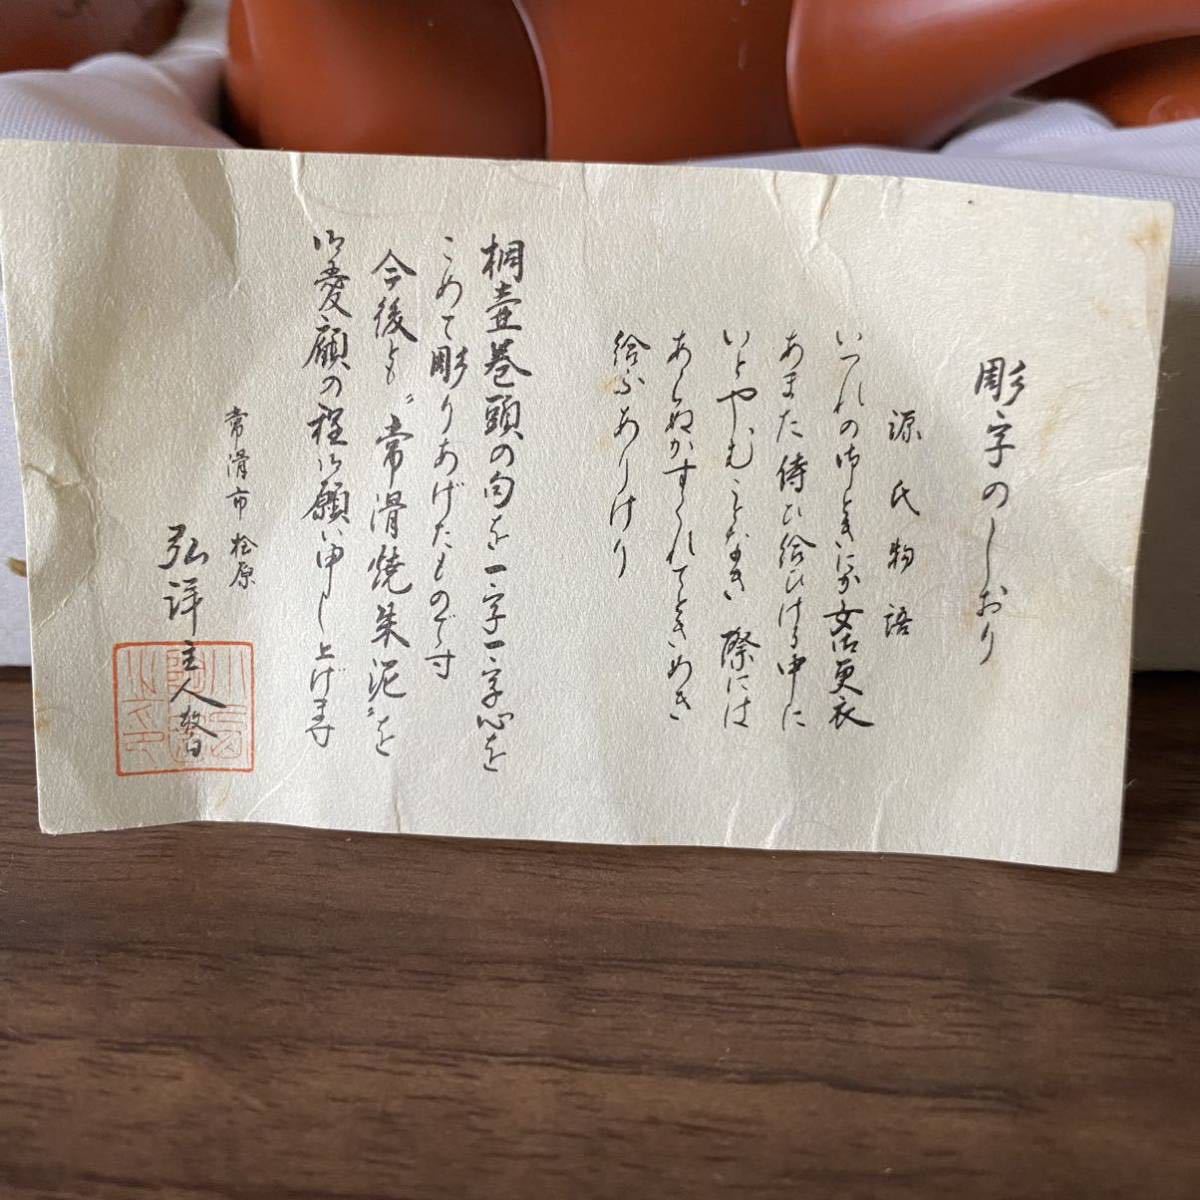 彫字のしおり
源氏物語
いつれの御ときにか女御更衣
あまた侍ひ給ひける中に
いとやむことなき際には
あらぬかすくれてときめき
給ふありけり
桐壷巻頭の句を一字一字心を
こめて彫りあげたもので寸
今後とも〝常滑焼朱泥〟を
御愛顧の程御願い申し上げます
常滑市桧原
弘洋主人謦